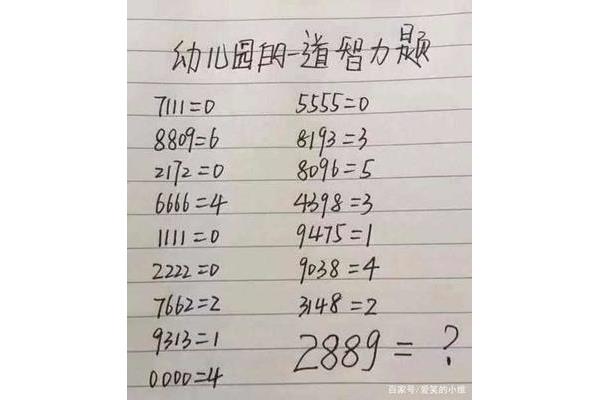 幼儿园的一道智力题
7111=0
8809=6
2172=0
6666=4
1111=0
2222=0
7662=2
9313=1
0000=4
5555=0
8193=3
8096=5
4398=3
9475=1
9038=4
3148=2
2889=?
百家号/爱笑的小维